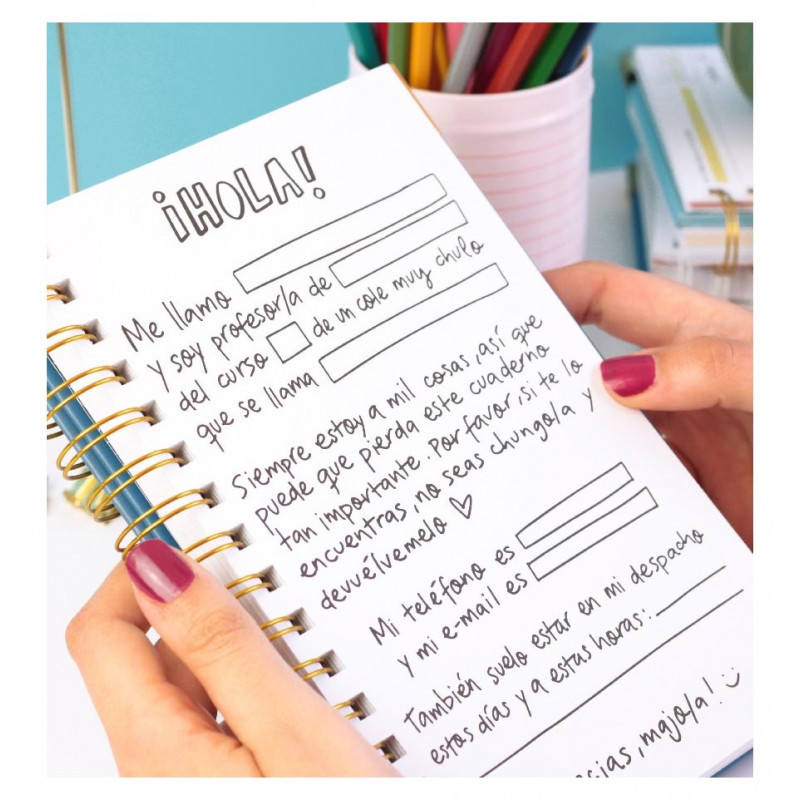 ¡HOLA!
Me llamo
y soy profesor/a de
del curso de un cole muy chulo
que se llama
Siempre estoy a mil cosas, así que
puede que pierda este cuaderno
tan importante. Por favor, si te lo
encuentras, no seas chungo/a y
devuélvemelo ♡
Mi teléfono es
y mi e-mail es
También suelo estar en mi despacho
estos días y a estas horas:
majo/a! :)